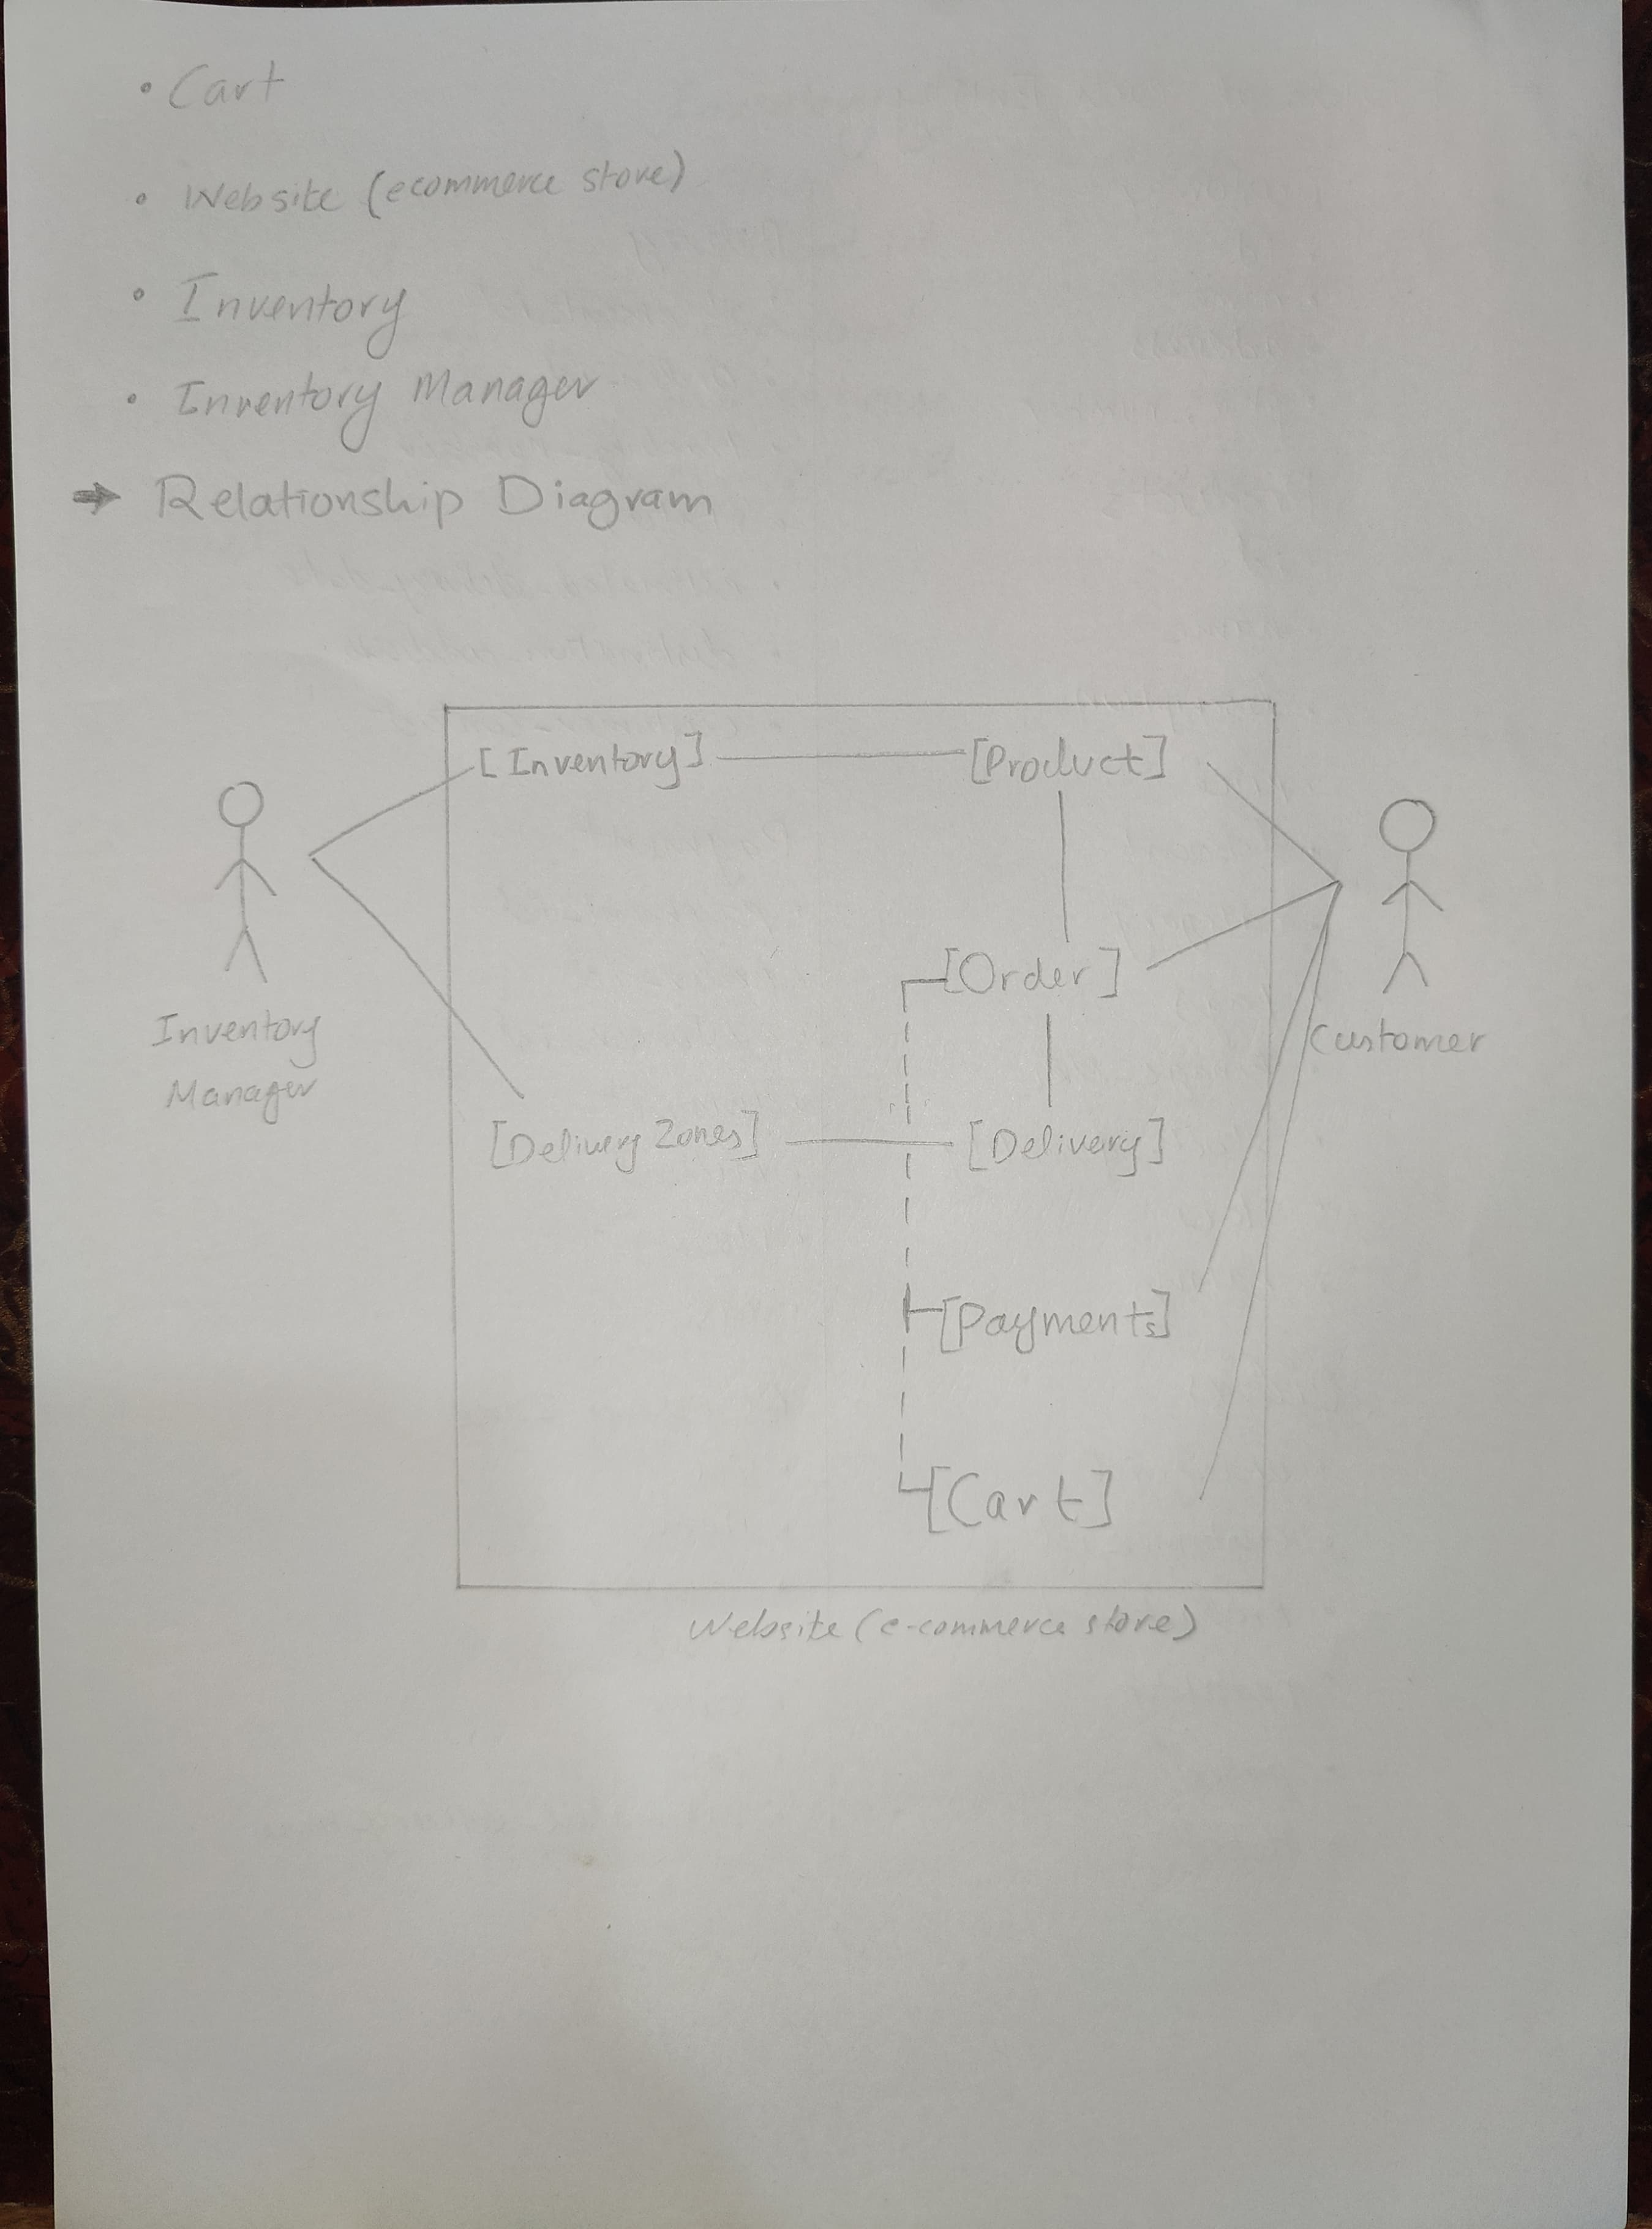 • Cart
• Website (ecommerce store)
• Inventory
• Inventory Manager
→ Relationship Diagram
[Inventory] [Product]
[Order]
Inventory
Manager
Customer
[Delivery Zones] [Delivery]
[Payments]
[Cart]
Website (e-commerce store)